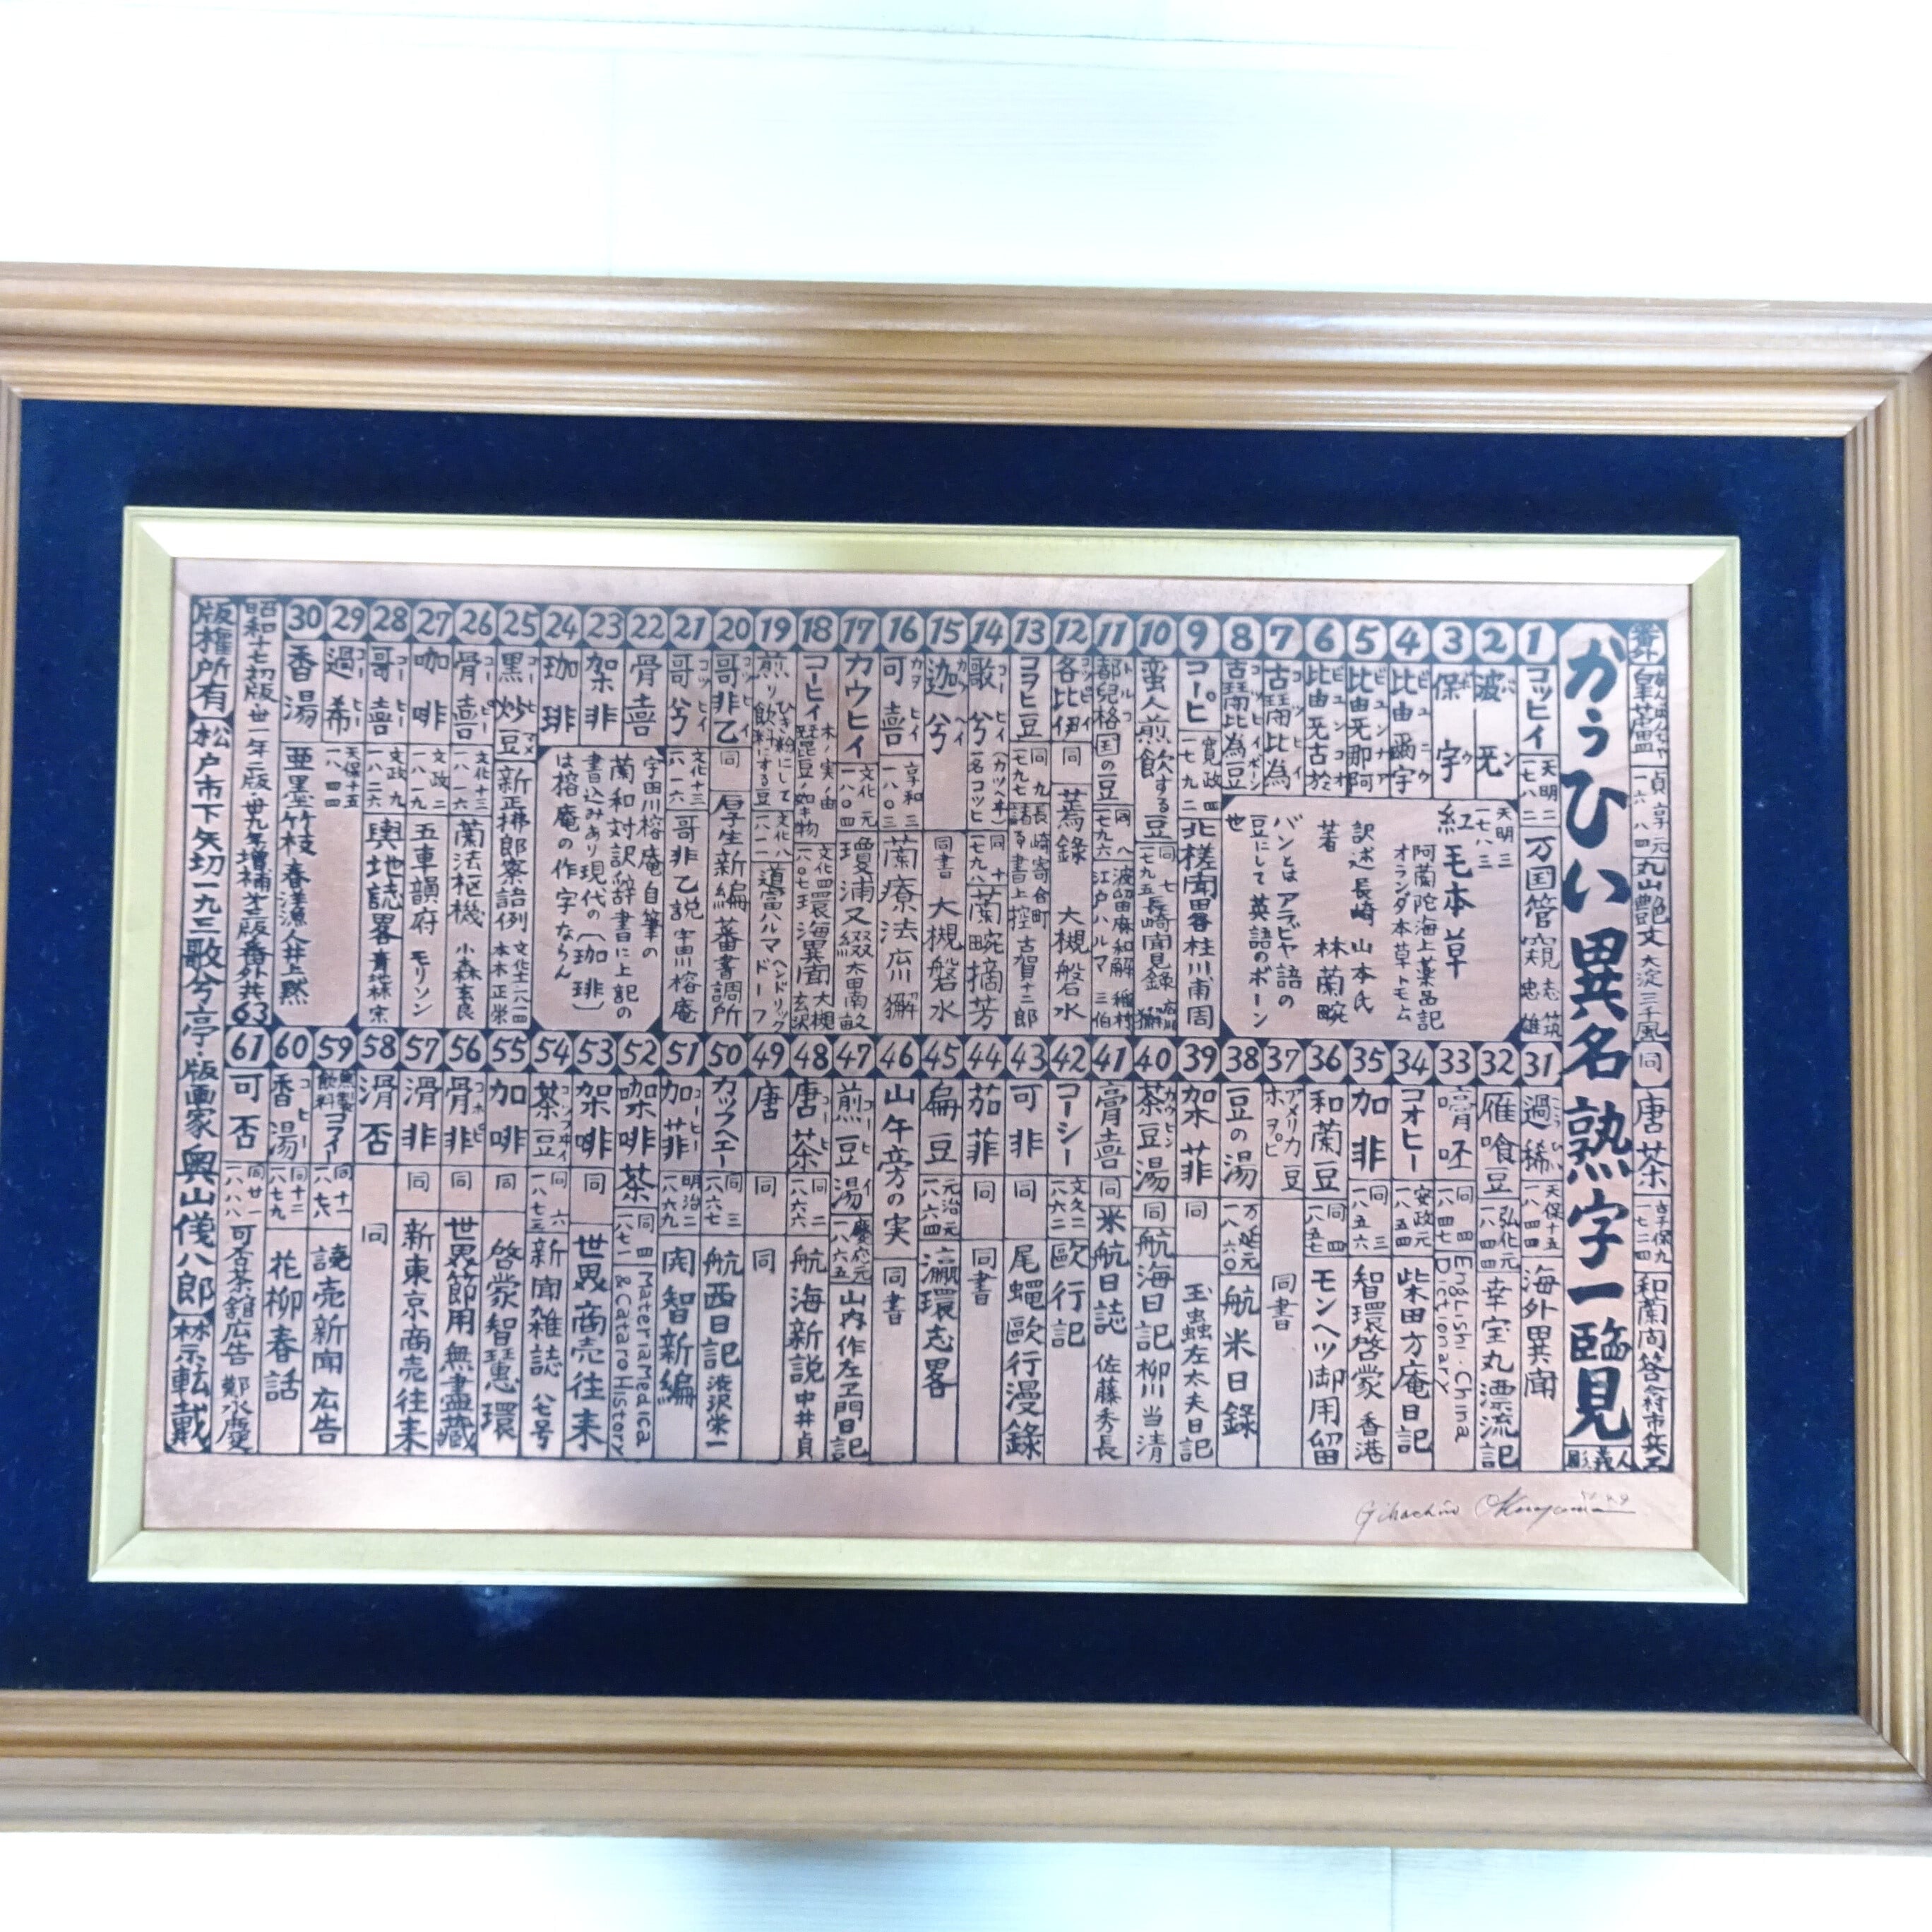 番外
皇蘆 一六八四 貞享元 丸山艶文 大淀三千風
同 唐茶 一七二四 享保九 和蘭問答 今村市兵エ
かうひい異名熟字一臨見
人義彫
1 コッヒイ 天明二 一七八二 万国管窺 志筑忠雄
2 波无 バン
3 保宇 ボウ
4 比由爾宇 ビユニウ
5 比由旡那阿 ビユンナア
6 比由旡古於 ビユンコオ
7 古闘比為 コッヒイ
8 古闘比為豆 コッヒイボーン
天明三 一七八三
紅毛本草
阿蘭陀海上薬品記
オランダ本草トモ云
訳述 長崎 山本氏
著 林蘭畹
バンとはアラビヤ語の
豆にして英語のボーン
也
9 コーヒ 寛政四 一七九二 北槎聞畧 桂川甫周
10 蛮人煎飲する豆 同七 一七九五 長崎聞見録 広川獬
11 都兒格国の豆 トルコ 同八 一七九六 波留麻和解 江戸ハルマ 稲村三伯
12 各比伊 コッピイ 同 蔫録 大槻磐水
13 コヲヒ豆 同九 一七九七 長崎寄合町諸る書上控 古賀十二郎
14 歌兮 コーヒイ(カッヘキ) 一名コッヒ 同十 一七九八 蘭畹摘芳
15 迦兮 カッヘイ 同書 大槻磐水
16 可喜 カヲヒイ 享和三 一八〇三 蘭療法 広川獬
17 カウヒイ 文化元 一八〇四 瓊浦又綴 太田南畝
18 コーヒイ 木ノ実ノ由 琵琶豆ノ如キ物 文化四 一八〇七 環海異聞 大槻玄沢
19 煎り飲料にする豆 ひき粉にして 文化八 一八一一 道富ハルマ ヘンドリックドーフ
20 哥非乙 コッヒイ 同 厚生新編 蕃書調所
21 哥兮 コッヒイ 文化十三 一八一六 哥非乙説 宇田川榕庵
22 骨喜
23 架非
24 珈琲
宇田川榕庵自筆の
蘭和対訳辞書に上記の
書込みあり現代の〔珈琲〕
は榕庵の作字ならん
25 黒炒豆 コーヒマメ 新正拂郎察語例 文化十一 一八一四 本木正栄
26 骨喜 コーヒー 文化十三 一八一六 蘭法枢機 小森玄良
27 咖啡 文政二 一八一九 五車韻府 モリソン
28 哥喜 コーヒー 文政九 一八二六 輿地誌畧 青林宗
29 過希 コーヒー 天保十五 一八四四
30 香湯 亜墨竹枝 春洋漁人 井上黙
昭和十七初版 世一年二版 丗九年増補才三版 番外共63
版権所有 松戸市下矢切一九三 歌兮亭・版画家 奥山儀八郎 禁示転載
31 過稀 天保十五 一八四四 海外異聞
32 雁喰豆 弘化元 一八四四 幸宝丸漂流記
33 㗖啡 同四 一八四七 English・China Dictionary
34 コオヒー 安政元 一八五四 柴田方庵日記
35 加非 同三 一八五六 智環啓蒙 香港
36 和蘭豆 同四 一八五七 モンヘツ御用留
37 アメリカ豆 ホヲピ 同書
38 豆の湯 万延元 一八六〇 航米日録
39 架菲 同 玉蟲左太夫日記
40 茶豆湯 カウヒン 同 航海日記 柳川当清
41 膏喜 同 米航日誌 佐藤秀長
42 コーシー 文久二 一八六二 歐行記
43 可非 同 尾蠅歐行漫録
44 茄菲 同 同書
45 扁豆 元治元 一八六四 瀛環志畧
46 山午旁の実 同書
47 煎豆湯 コーヒイ 慶応元 一八六五 山内作左ヱ門日記
48 唐茶 コーヒ 同二 一八六六 航海新説 中井貞
49 唐 同 同
50 カッフヘエー 同三 一八六七 航西日記 渋沢栄一
51 加菲 コーヒー 明治二 一八六九 開智新編
52 咖啡茶 同四 一八七一 Materia Medica & Cataro History
53 架啡 同 世界商売往来
54 茶豆 コッフヰイ 同六 一八七三 新聞雑誌 八七号
55 加啡 同 啓蒙智慧環
56 骨非 コホピ 同 世界節用無盡蔵
57 滑非 同 新東京商売往来
58 滑否 同
59 無製飲料コフイー 同十一 一八七八 読売新聞広告
60 香湯 コヒー 同十二 一八七九 花柳春話
61 可否 同廿一 一八八八 可否茶舘広告 鄭永慶
Gihachiro Okuyama